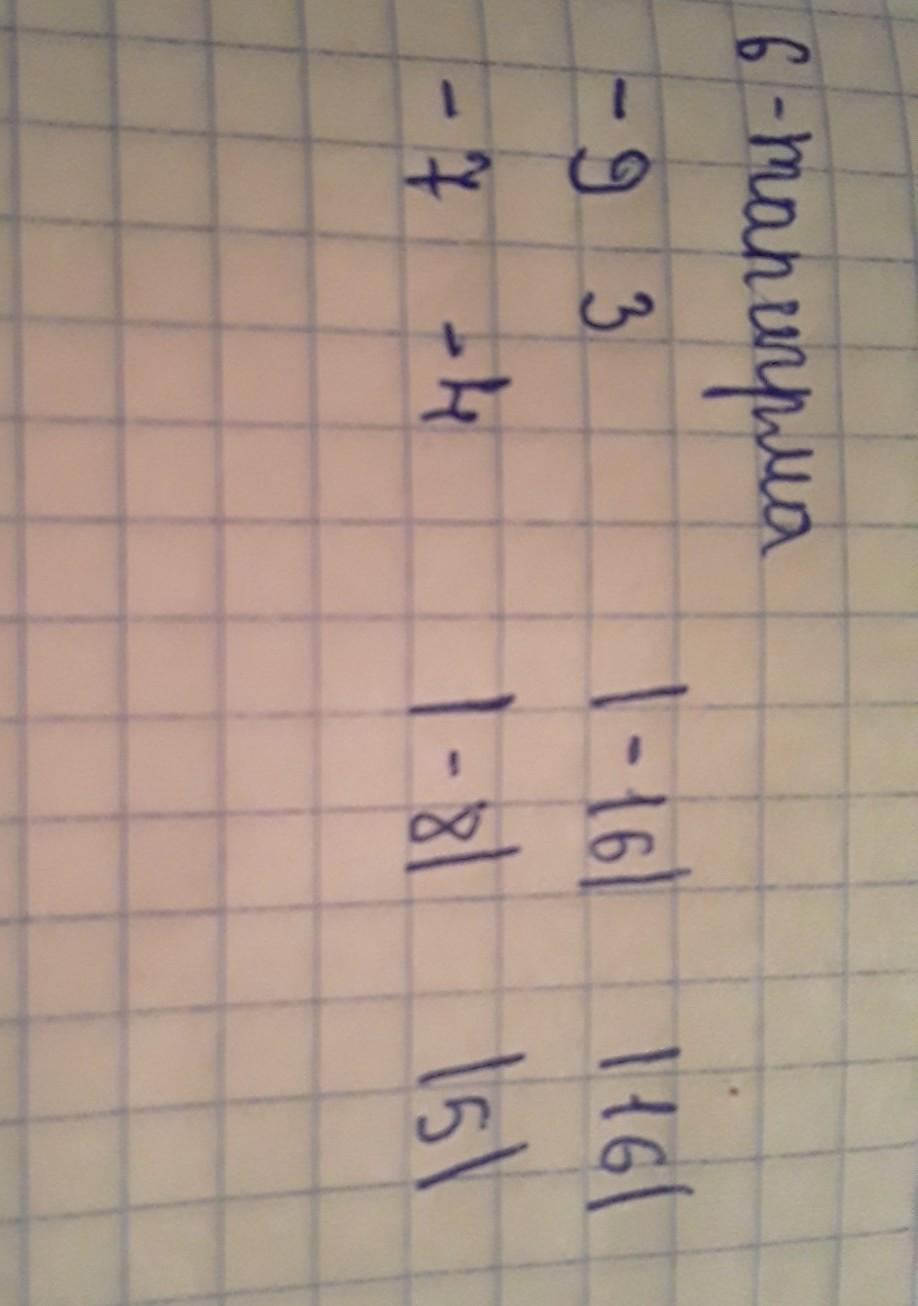 6-тапшырма
- 9 3 |-16| |16|
- 7 -4 |-8| |5|